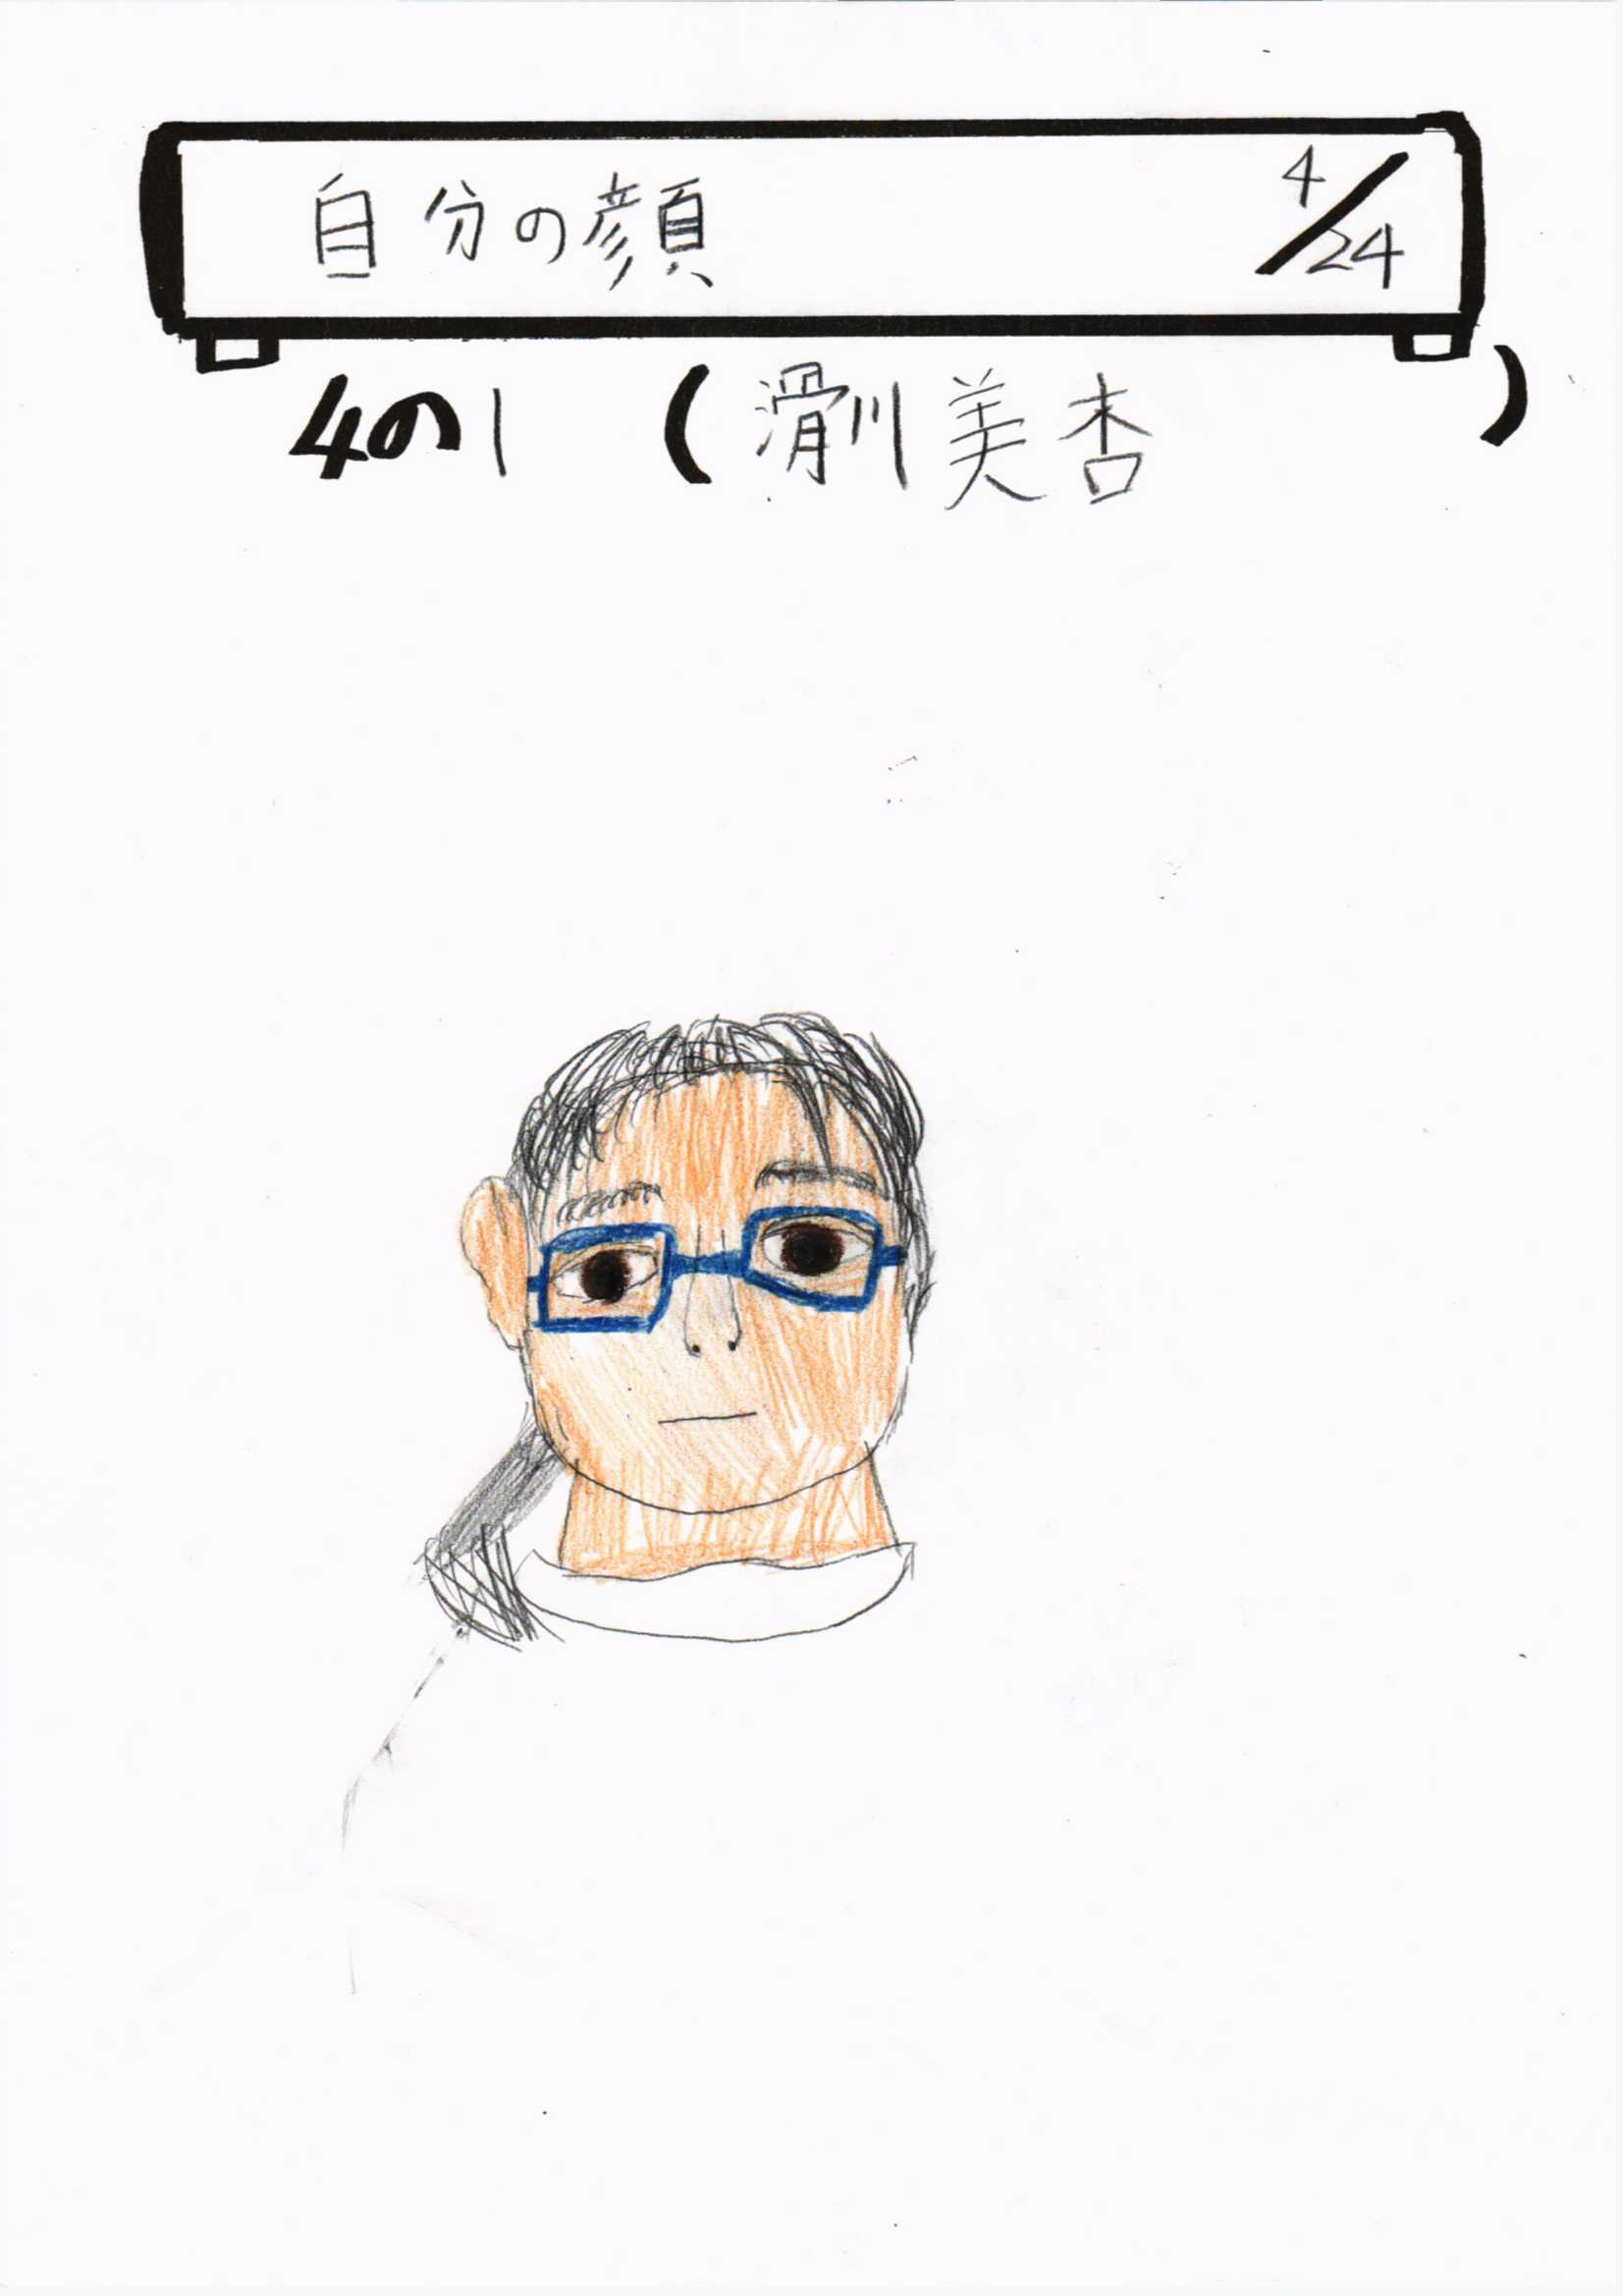 自分の顔 4/24
4の1 (滑川美杏)